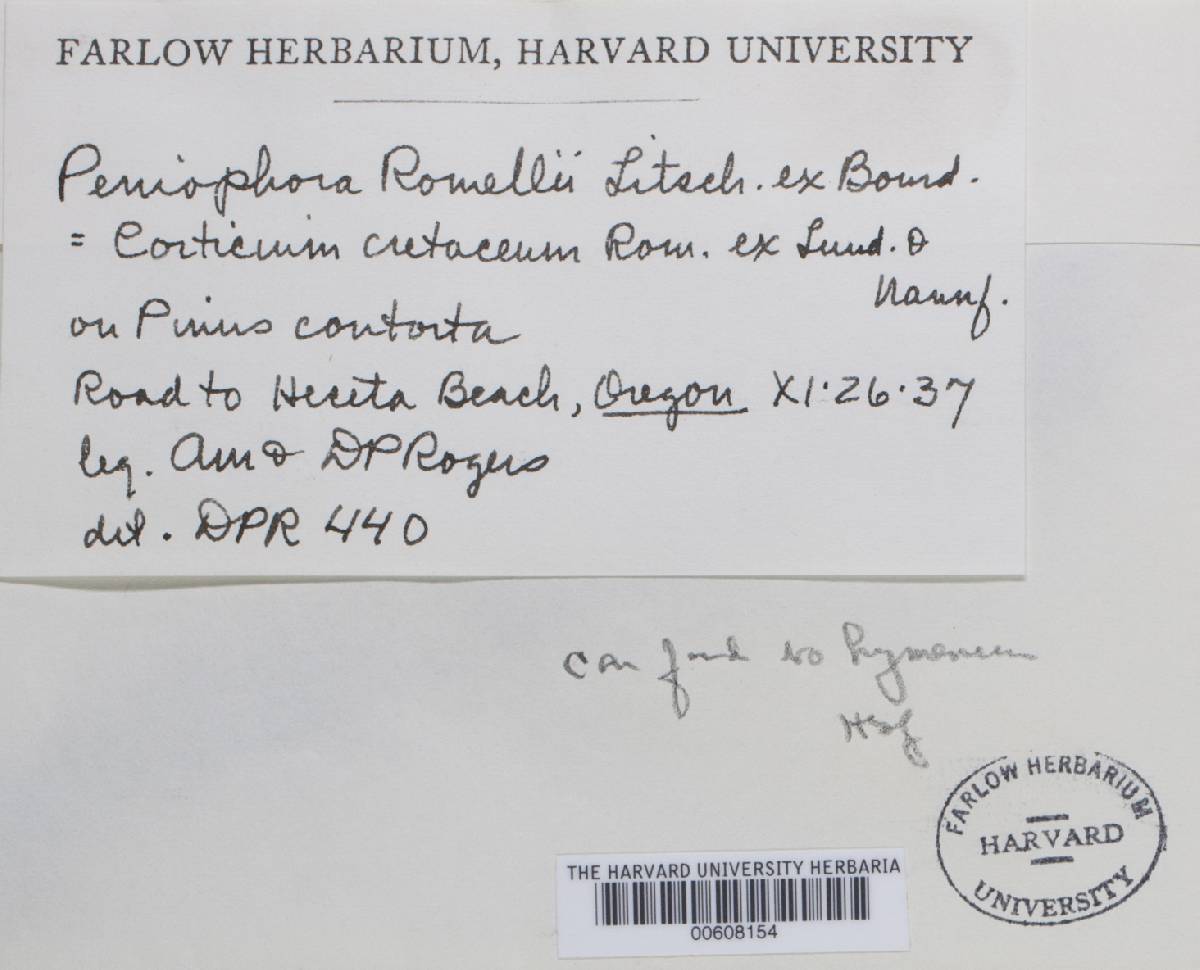 FARLOW HERBARIUM, HARVARD UNIVERSITY
Peniophora Romellii Litsch. ex Bourd.
= Corticium cretaceum Rom. ex Lund. &
Nannf.
on Pinus contorta
Road to Heceta Beach, Oregon XI·26·37
leg. AM & DP Rogers
det. DPR 440
can find no hymenium
FARLOW HERBARIUM
HARVARD
UNIVERSITY
THE HARVARD UNIVERSITY HERBARIA
00608154